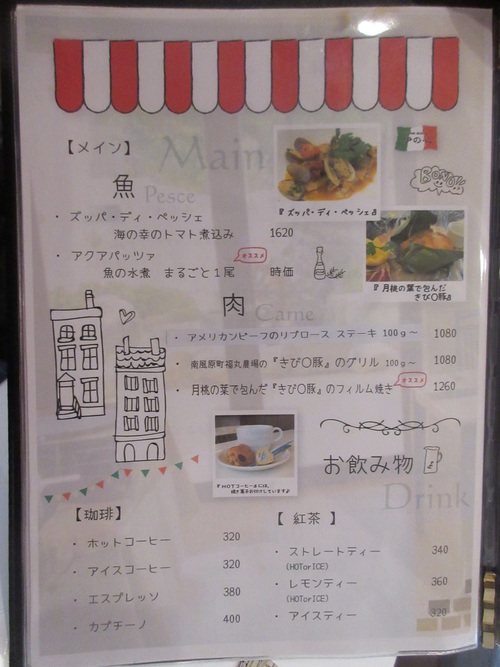 【メイン】
Main
魚
Pesce
・ ズッパ・ディ・ペッシェ
海の幸のトマト煮込み 1620
『 ズッパ・ディ・ペッシェ』
・ アクアパッツァ
オススメ
魚の水煮 まるごと１尾 時価
『 月桃の葉で包んだ
きび〇豚』
肉
Carne
・ アメリカンビーフのリブロース ステーキ 100ｇ～ 1080
・ 南風原町福丸農場の『きび〇豚』のグリル 100ｇ～ 1080
オススメ
・ 月桃の葉で包んだ『きび〇豚』のフィルム焼き 1260
お飲み物
Drink
『 HOTコーヒーには、
焼き菓子が付いています♪
【珈琲】
・ ホットコーヒー 320
・ アイスコーヒー 320
・ エスプレッソ 380
・ カプチーノ 400
【 紅茶 】
・ ストレートティー 340
(HOTorICE)
・ レモンティー 360
(HOTorICE)
・ アイスティー 320